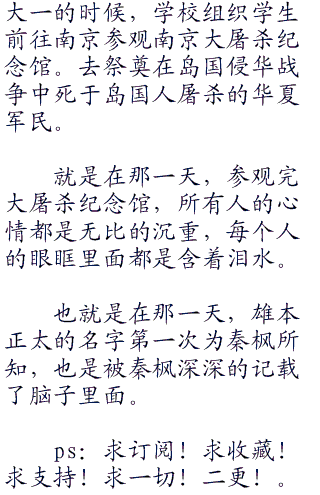 大一的时候，学校组织学生
前往南京参观南京大屠杀纪
念馆。去祭奠在岛国侵华战
争中死于岛国人屠杀的华夏
军民。
就是在那一天，参观完
大屠杀纪念馆，所有人的心
情都是无比的沉重，每个人
的眼眶里面都是含着泪水。
也就是在那一天，雄本
正太的名字第一次为秦枫所
知，也是被秦枫深深的记载
了脑子里面。
ps：求订阅！求收藏！
求支持！求一切！二更！。